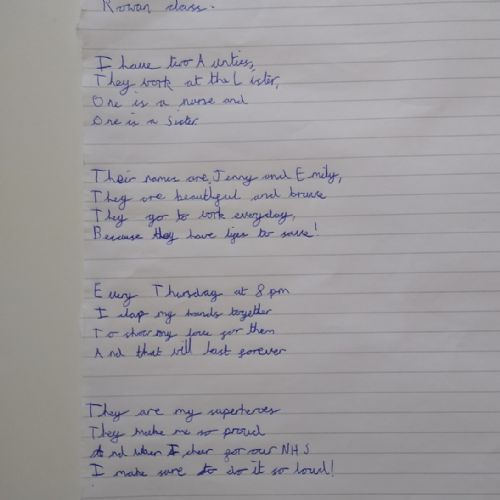 Rowan class.
I have two Aunties,
They work at the Lister,
One is a nurse and
One is a Sister
Their names are, Jenny and Emily,
They are beautiful and brave
They go to work everyday,
Because they have lives to save!
Every Thursday at 8pm
I clap my hands together
To show my love for them
And that will last forever
They are my superheroes
They make me so proud
And when I cheer for our NHS
I make sure to do it so loud!